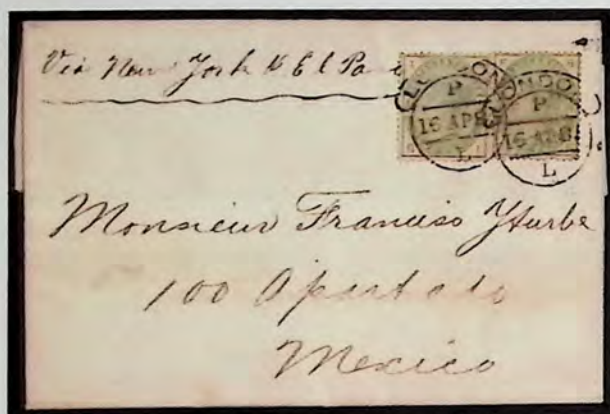 Via New York & El Paso
LONDON
P
16 AP 8
L
LONDON
P
16 AP 8
L
Monsieur Francisco Yturbe
100 Apartado
Mexico